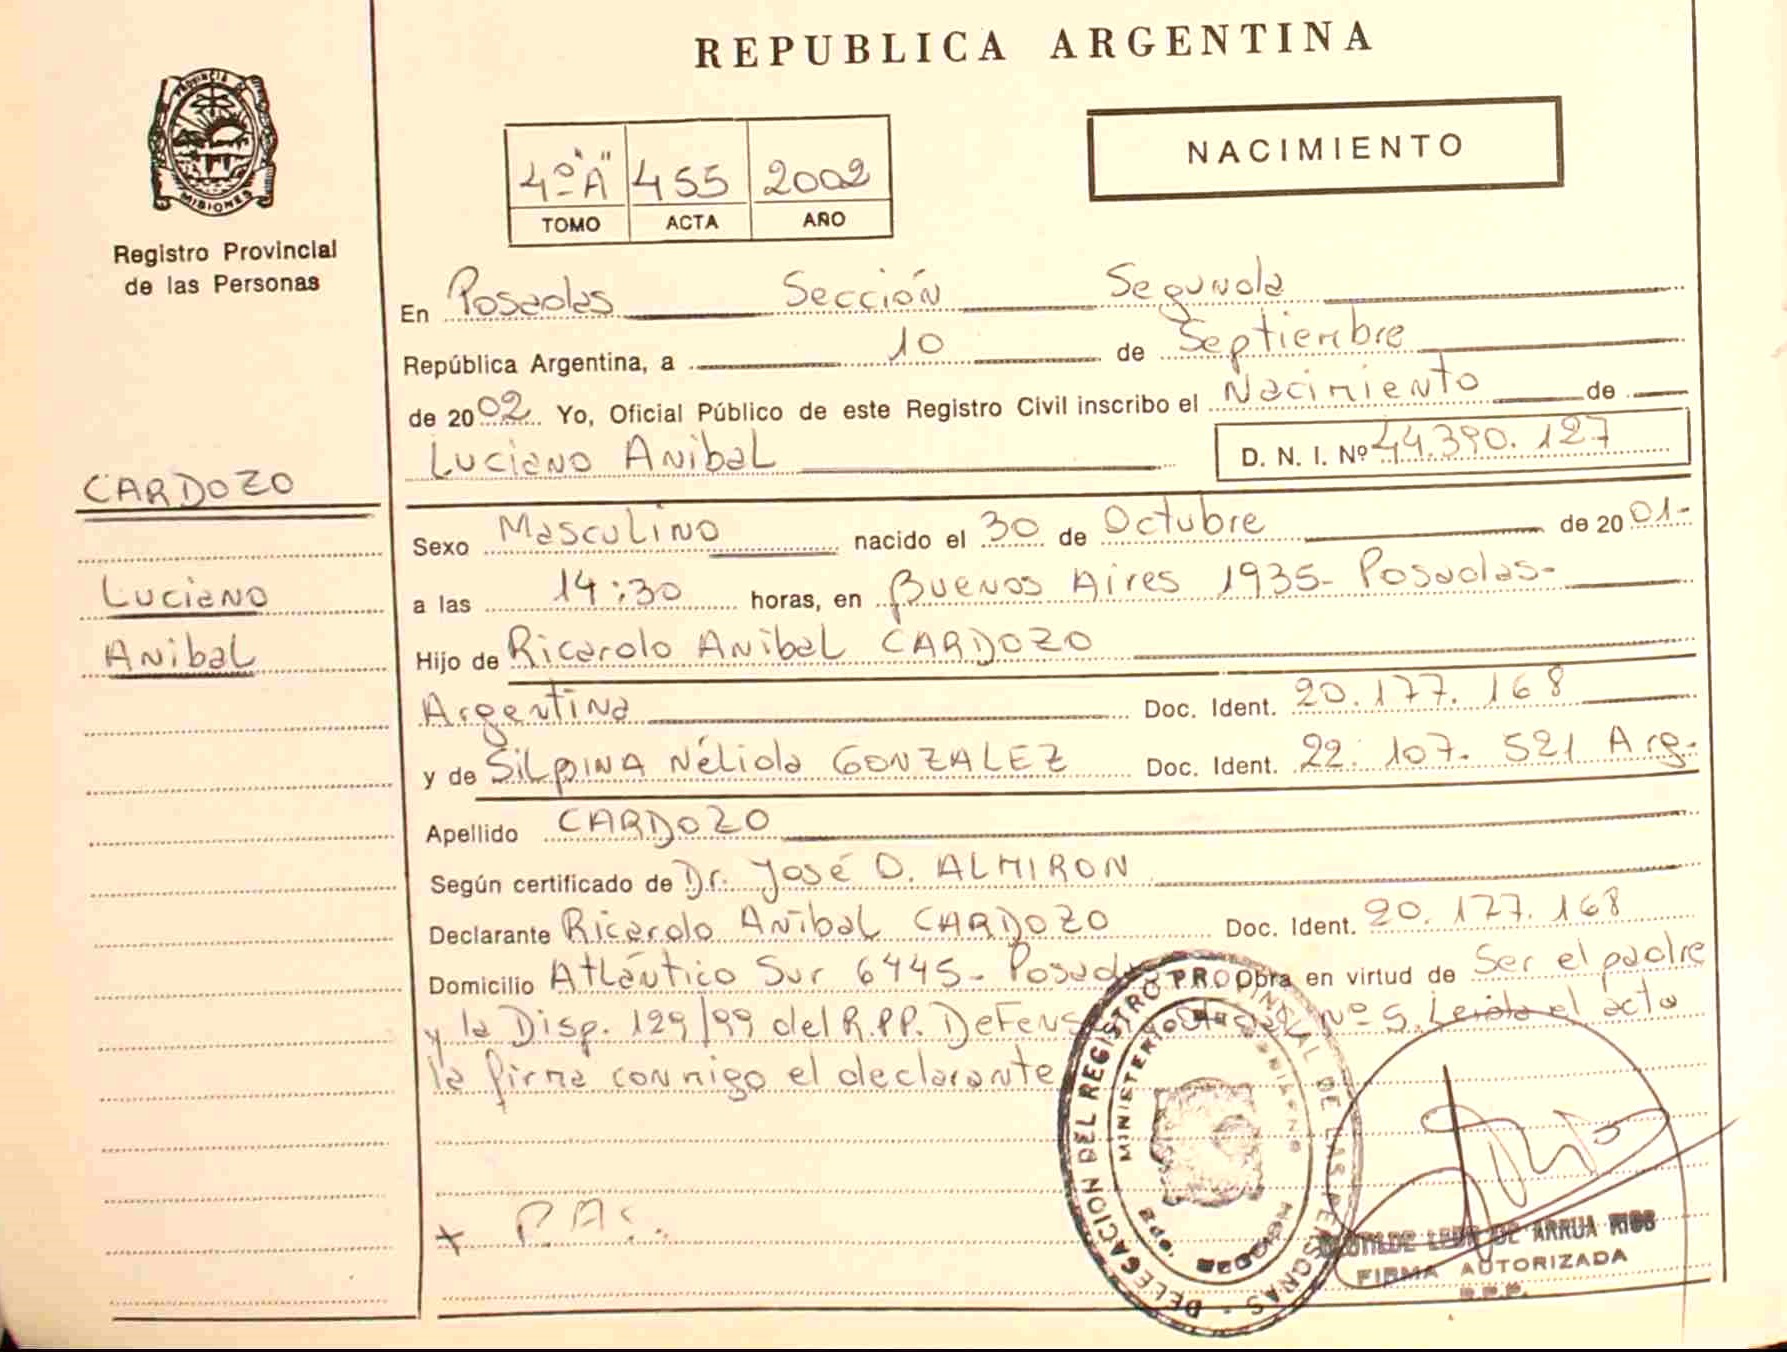 REPUBLICA ARGENTINA
PROVINCIA DE
MISIONES
Registro Provincial
de las Personas
NACIMIENTO
4º "A" 455 2002
TOMO ACTA AÑO
En Posadas Sección Segunda
República Argentina, a 10 de Septiembre
de 2002. Yo, Oficial Público de este Registro Civil inscribo el Nacimiento de
Luciano Anibal D. N. I. Nº 44.390.127
CARDOZO
Luciano
Anibal
Sexo Masculino nacido el 30 de Octubre de 2001-
a las 14:30 horas, en Buenos Aires 1935- Posadas-
Hijo de Ricardo Anibal CARDOZO
Argentina Doc. Ident. 20.177.168
y de Nélida GONZALEZ Doc. Ident. 22.107.521 Arg.
Apellido CARDOZO
Según certificado de Dr. José O. ALMIRON
Declarante Ricardo Anibal CARDOZO Doc. Ident. 20.177.168
Domicilio Atlántico Sur 6445- Posadas Obra en virtud de Ser el padre
y la Disp. 129/99 del R.PP. Defensoría Nº 5. Leída el acta
la firma conmigo el declarante
DELEGACION DEL REGISTRO PROVINCIAL DE LAS PERSONAS
MINISTERIO DE GOBIERNO
DE ARRUA RIOS
FIRMA AUTORIZADA
R.P.P.